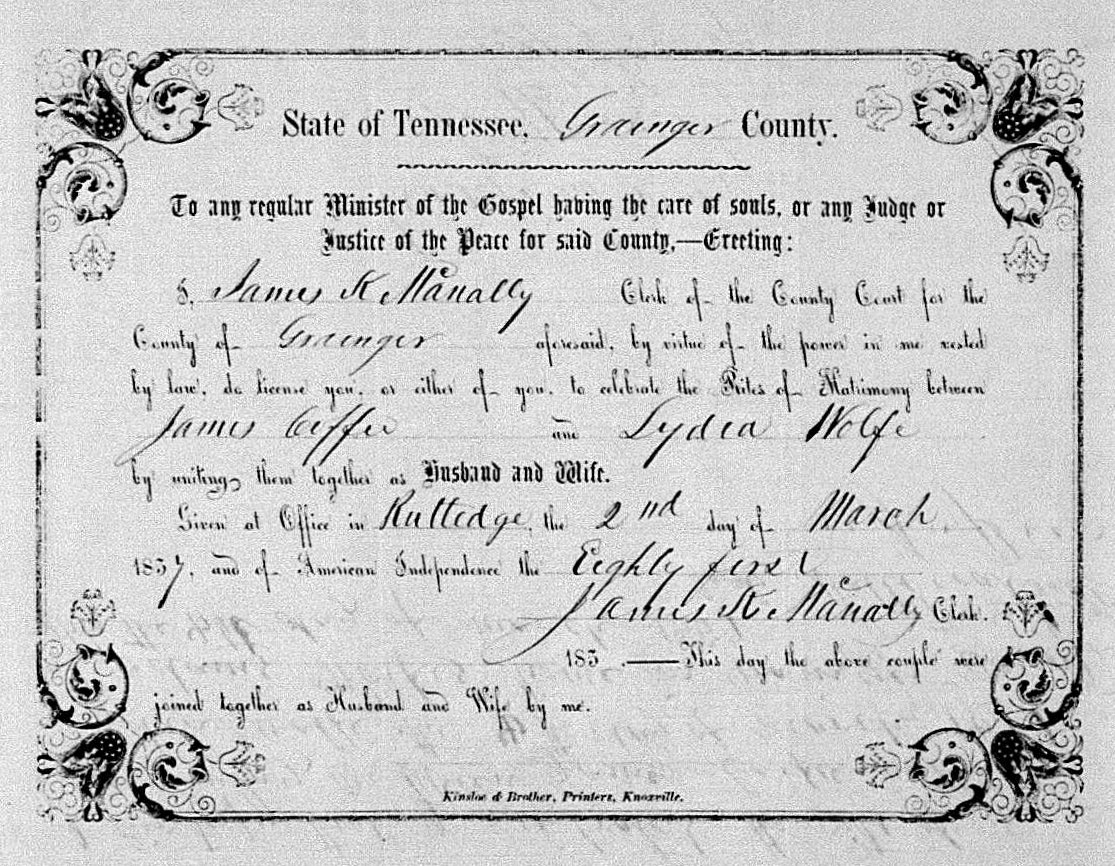 State of Tennessee, Grainger County.
To any regular Minister of the Gospel having the care of souls, or any Judge or
Justice of the Peace for said County,—Greeting:
I, James K McAnally Clerk of the County Court for the
County of Grainger aforesaid, by virtue of the power in me vested
by law, do license you, or either of you, to celebrate the Rites of Matrimony between
James and Lydia Wolfe
by uniting them together as Husband and Wife.
Given at Office in Rutledge, the 2nd day of March
1857, and of American Independence the Eighty first
James K McAnally Clerk.
185 .—This day the above couple were
joined together as Husband and Wife by me.
Kinsloe & Brother, Printers, Knoxville.